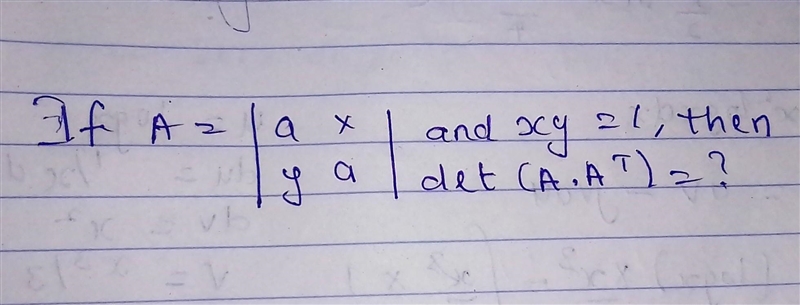 If A = | a x | and xy = 1, then
| y a | det (A.Aᵀ) = ?